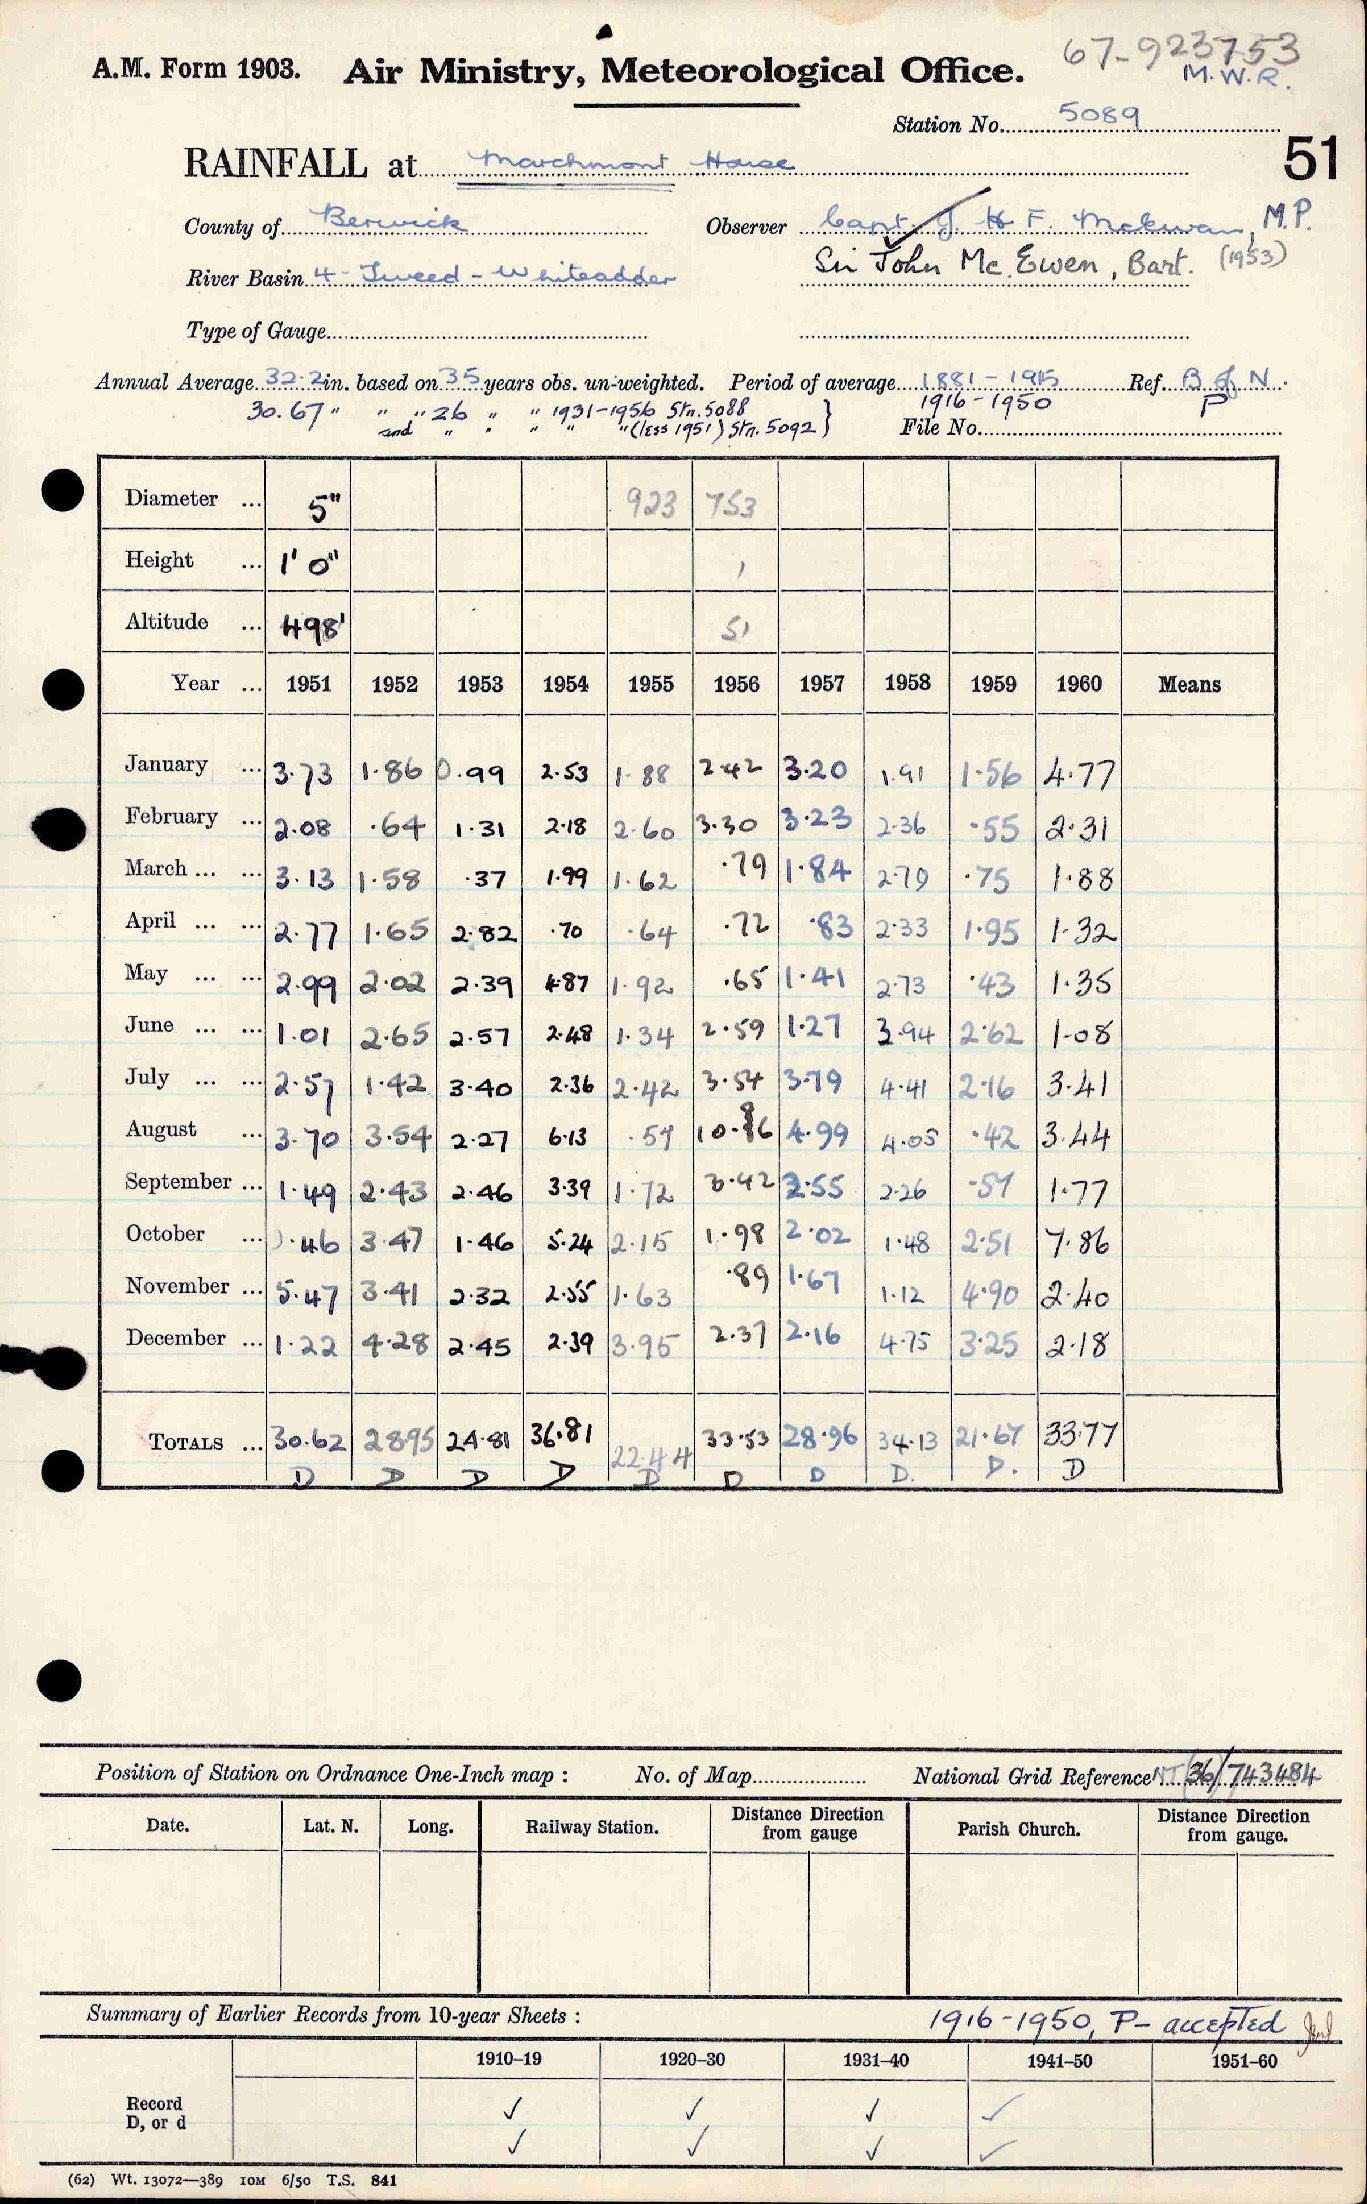 67-923753
A.M. Form 1903. Air Ministry, Meteorological Office. M.W.R.
Station No. 5089
51
RAINFALL at Marchmont House
County of Berwick Observer Capt. J. H F. McEwan, M.P.
River Basin 4 - Tweed - Whiteadder Sir John Mc. Ewen, Bart. (1953)
Type of Gauge
Annual Average 32.2 in. based on 35 years obs. un-weighted. Period of average 1881-1915 Ref. B of N.
30.67" " " 26 " " 1931-1956 Stn. 5088 1916-1950 P
and " " " " "(less 1951) Stn. 5092 } File No.
Diameter ... 5" 923 753
Height ... 1' 0" 1
Altitude ... 498' 51
Year ... 1951 1952 1953 1954 1955 1956 1957 1958 1959 1960 Means
January ... 3.73 1.86 0.99 2.53 1.88 2.42 3.20 1.91 1.56 4.77
February ... 2.08 .64 1.31 2.18 2.60 3.30 3.23 2.36 .55 2.31
March ... ... 3.13 1.58 .37 1.99 1.62 .79 1.84 2.79 .75 1.88
April ... ... 2.77 1.65 2.82 .70 .64 .72 .83 2.33 1.95 1.32
May ... ... 2.99 2.02 2.39 4.87 1.92 .65 1.41 2.73 .43 1.35
June ... ... 1.01 2.65 2.57 2.48 1.34 2.59 1.27 3.94 2.62 1.08
July ... ... 2.57 1.42 3.40 2.36 2.42 3.54 3.79 4.41 2.16 3.41
August ... 3.70 3.54 2.27 6.13 .57 10.86 4.99 4.05 .42 3.44
September ... 1.49 2.43 2.46 3.39 1.72 3.42 2.55 2.26 .57 1.77
October ... 0.46 3.47 1.46 5.24 2.15 1.98 2.02 1.48 2.51 7.86
November ... 5.47 3.41 2.32 2.55 1.63 .89 1.67 1.12 4.90 2.40
December ... 1.22 4.28 2.45 2.39 3.95 2.37 2.16 4.75 3.25 2.18
TOTALS ... 30.62 28.95 24.81 36.81 22.44 33.53 28.96 34.13 21.67 33.77
D D D D D D D D. D. D
Position of Station on Ordnance One-Inch map : No. of Map National Grid Reference NT (36)/743484
Date. Lat. N. Long. Railway Station. Distance Direction from gauge Parish Church. Distance Direction from gauge.
Summary of Earlier Records from 10-year Sheets : 1916-1950, P- accepted
1910–19 1920–30 1931–40 1941–50 1951–60
Record ✓ ✓ ✓ ✓
D, or d ✓ ✓ ✓ ✓
(62) Wt. 13072—389 10M 6/50 T.S. 841